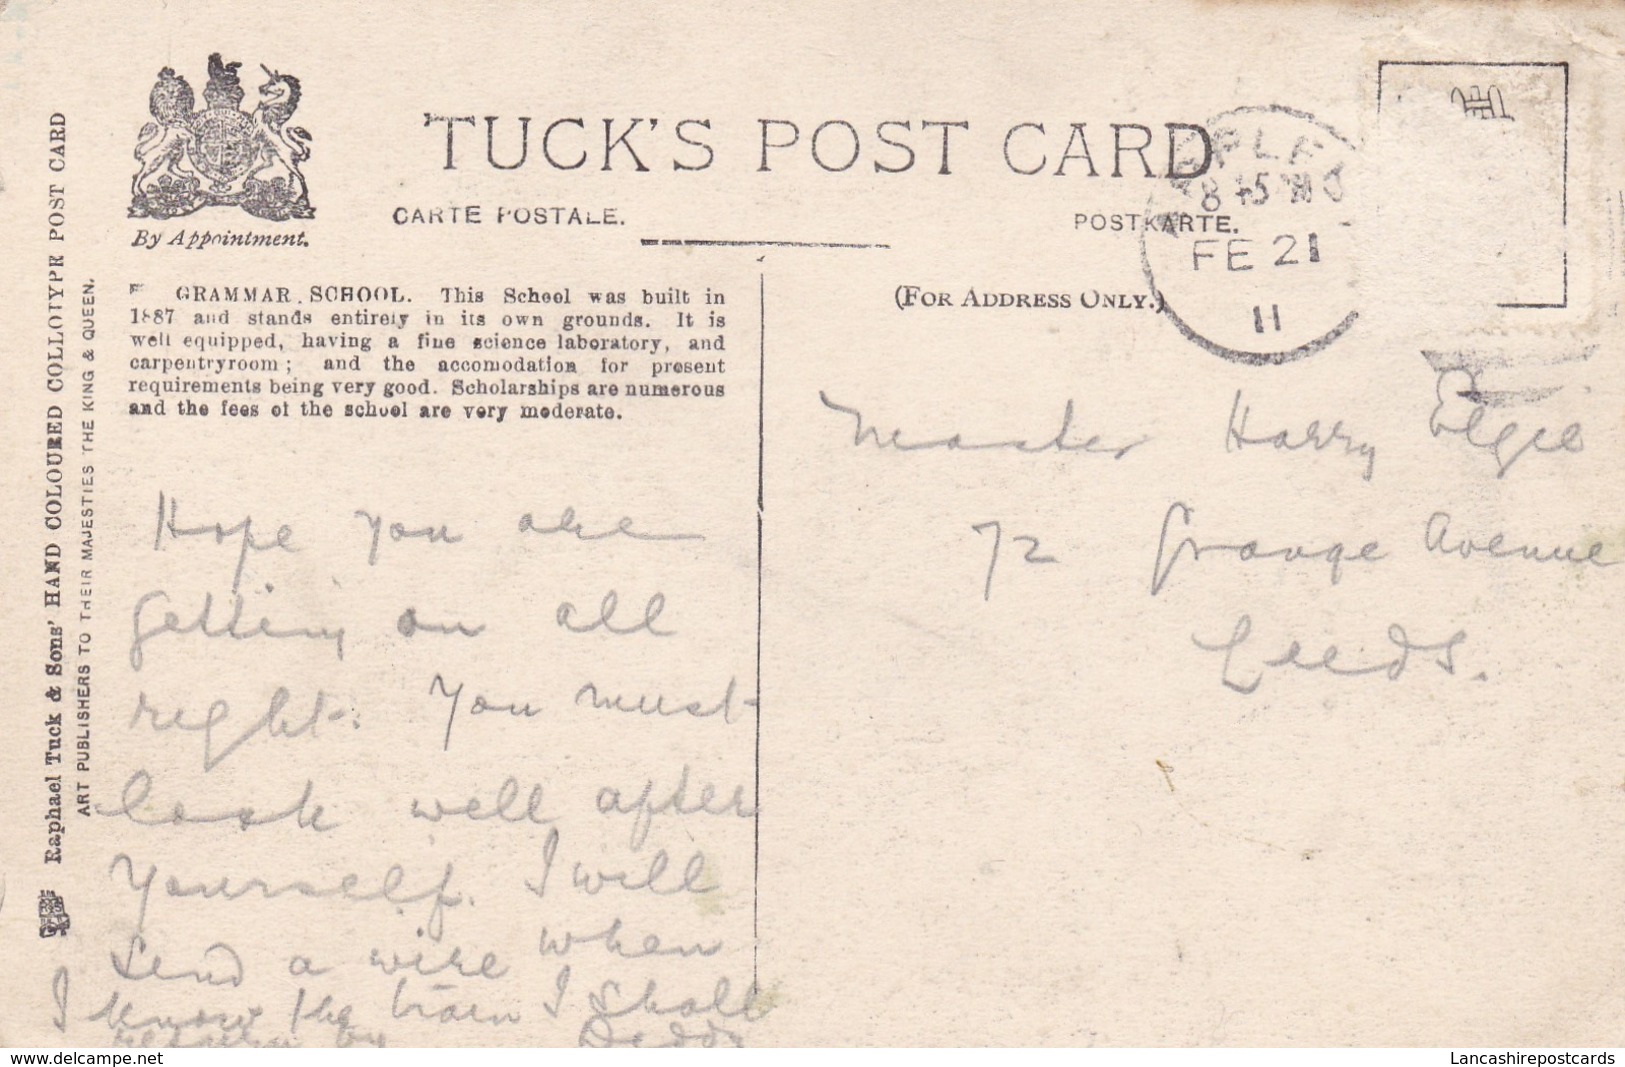 TUCK'S POST CARD
CARTE POSTALE.
POSTKARTE.
By Appointment.
(FOR ADDRESS ONLY.)
8 45
FE 21
11
GRAMMAR SCHOOL. This School was built in
1887 and stands entirely in its own grounds. It is
well equipped, having a fine science laboratory, and
carpentryroom; and the accomodation for present
requirements being very good. Scholarships are numerous
and the fees of the school are very moderate.
Raphael Tuck & Sons' HAND COLOURED COLLOTYPE POST CARD
ART PUBLISHERS TO THEIR MAJESTIES THE KING & QUEEN.
Hope you are
getting on all
right. You must
look well after
yourself. I will
send a wire when
I know the train I shall
return by Daddy
Master Harry Elgie
72 Grange Avenue
Leeds.
delcampe.net
Lancashirepostcards